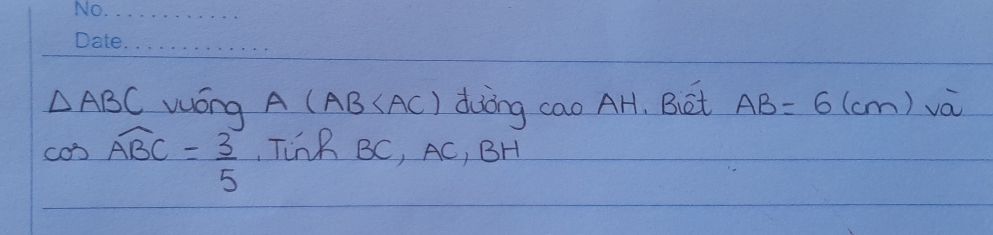 No.............
Date..............
Δ ABC vuông A (AB<AC) đường cao AH. Biết AB = 6 (cm) và
cos \widehat{ABC} = \frac{3}{5}. Tính BC, AC, BH